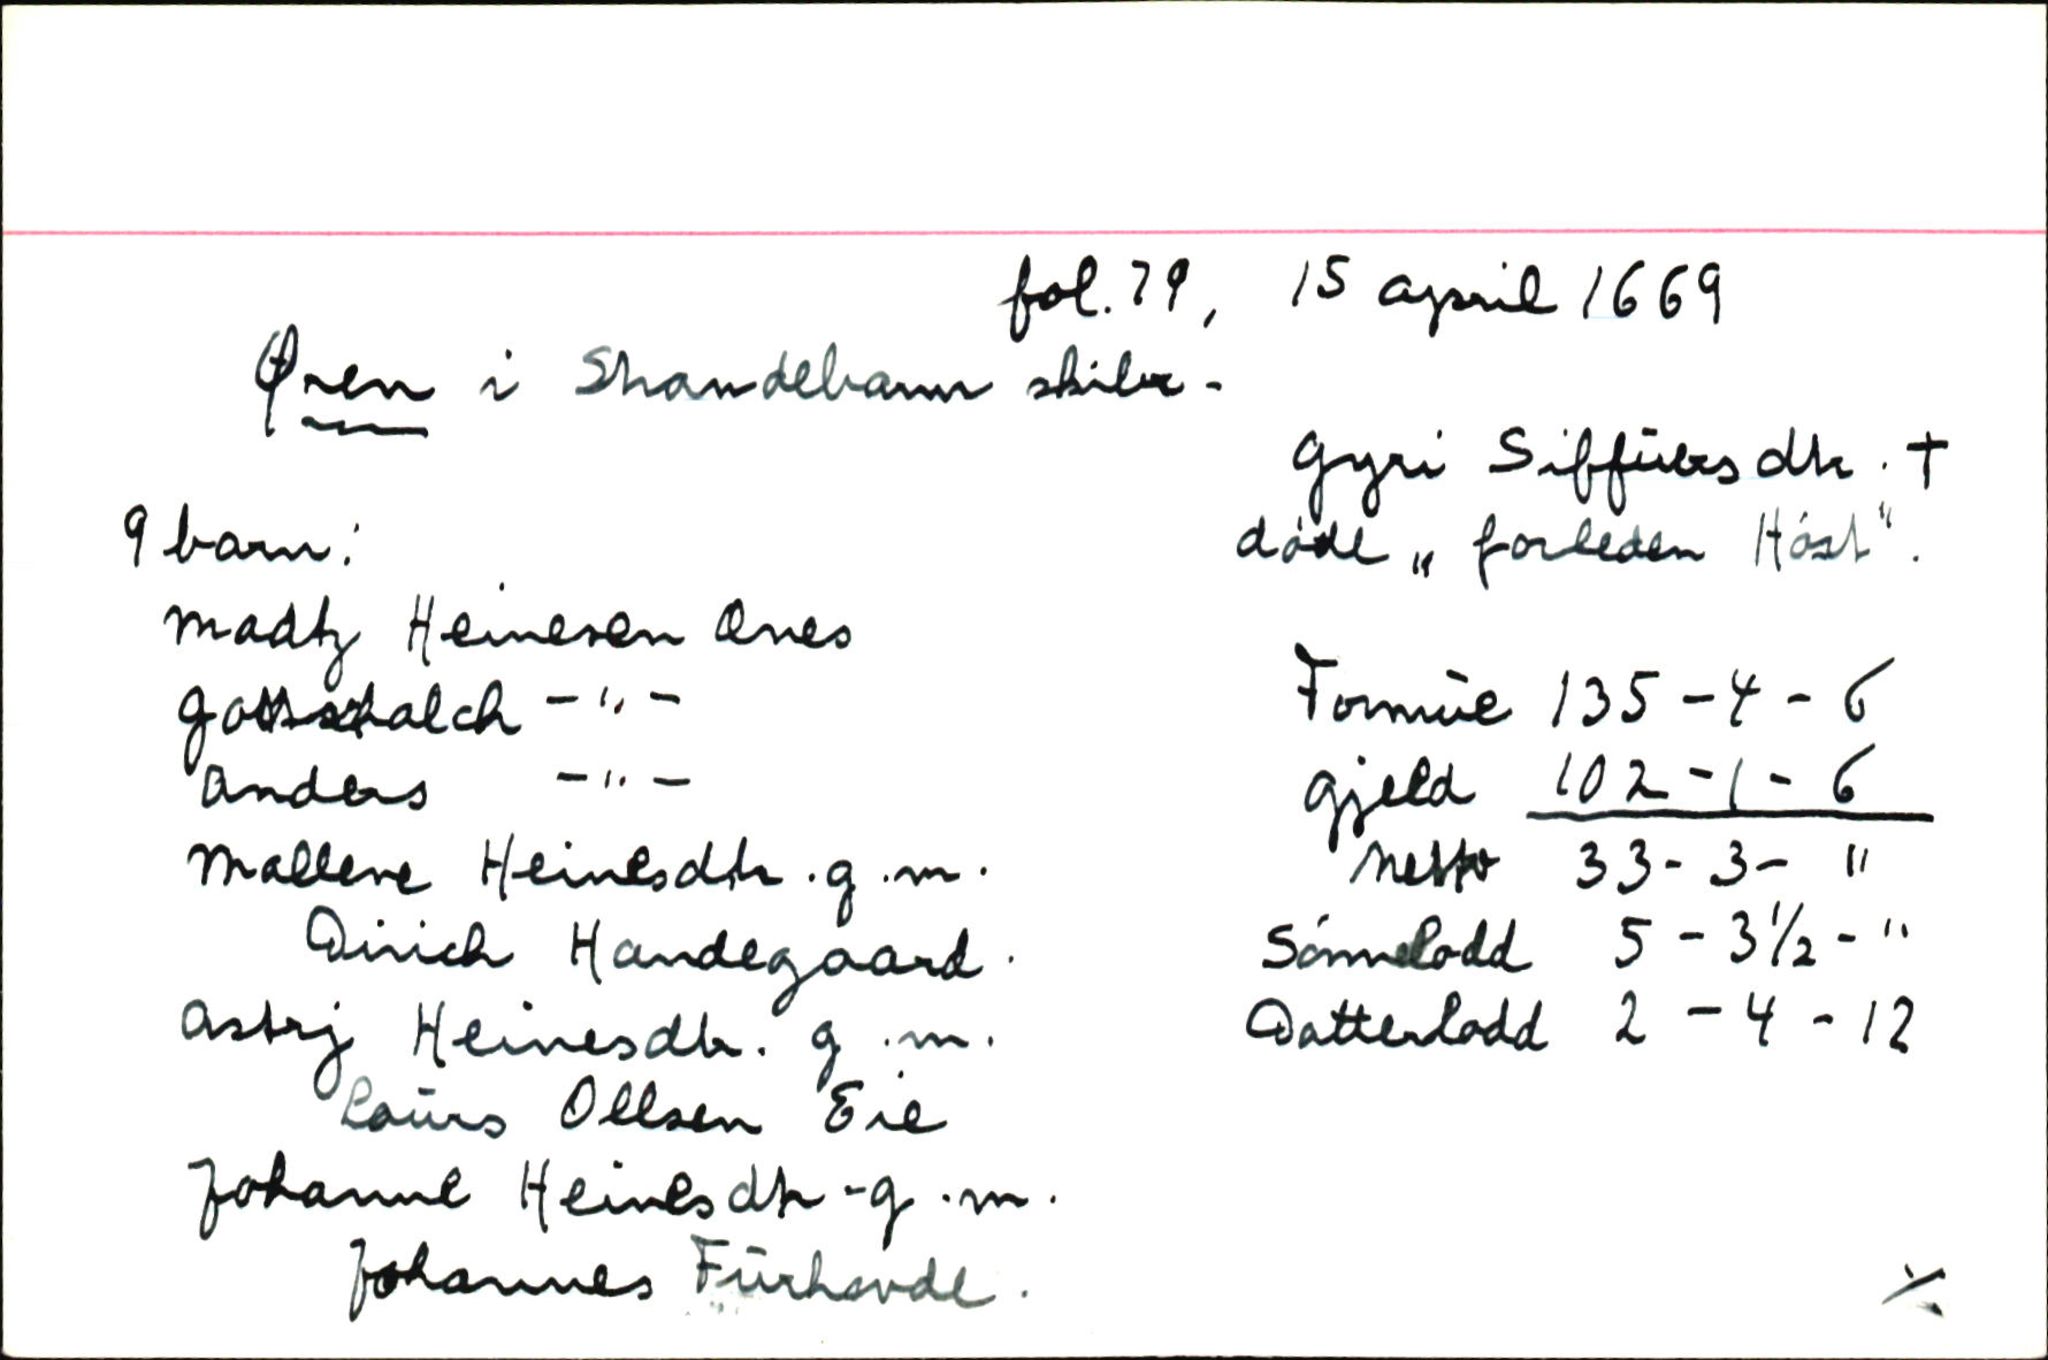 fol. 79, 15 april 1669
Øren i Strandebarm skibr-
Gyri Siffüersdtr. †
døde „forleden Høst".
9 barn:
Madtz Heinesen Ones
Gottschalch -"-
Anders -"-
Mallene Heinesdtr. g.m.
Dirich Handegaard.
Astrj Heinesdtr. g.m.
Laürs Ollsen Eie
Johanne Heinesdtr - g.m.
Johannes Fürhovde.
Formüe 135-4-6
Gjeld 102-1-6
Netto 33-3-"
Sønnelodd 5-3½-"
Datterlodd 2-4-12